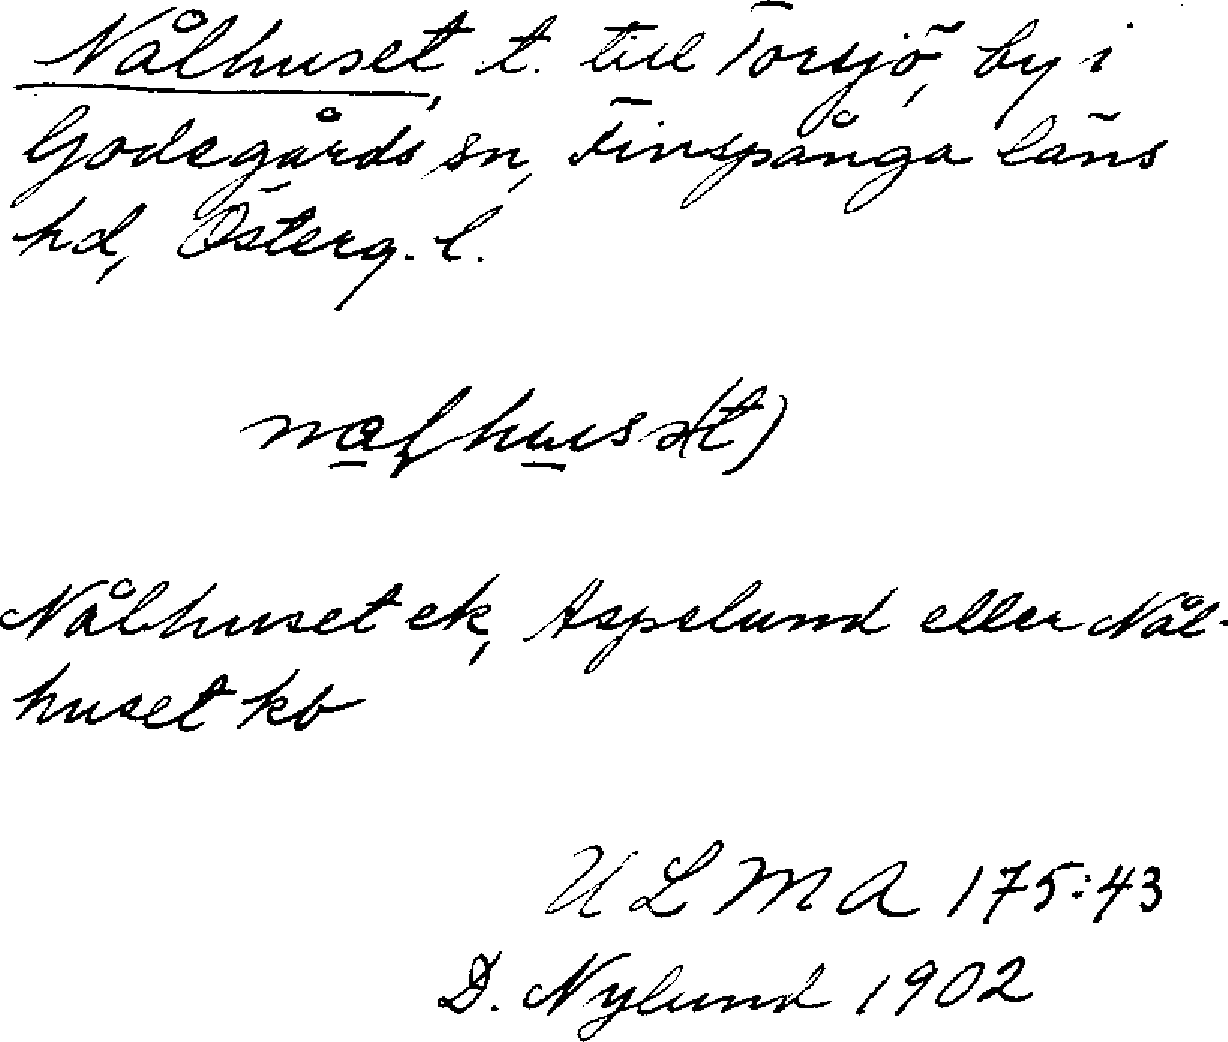 Nålhuset, t. till Torsjö, by i
Godegårds sn, Finspånga läns
hd, Österg. l.
Nålhuset ek, Aspelund eller Nål-
huset kb
ULMA 175:43
D. Nylund 1902